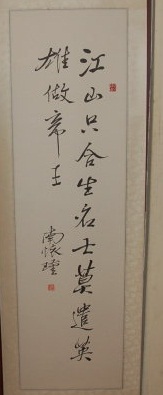 江山只合生名士莫遣英
雄做帝王
南懷瑾